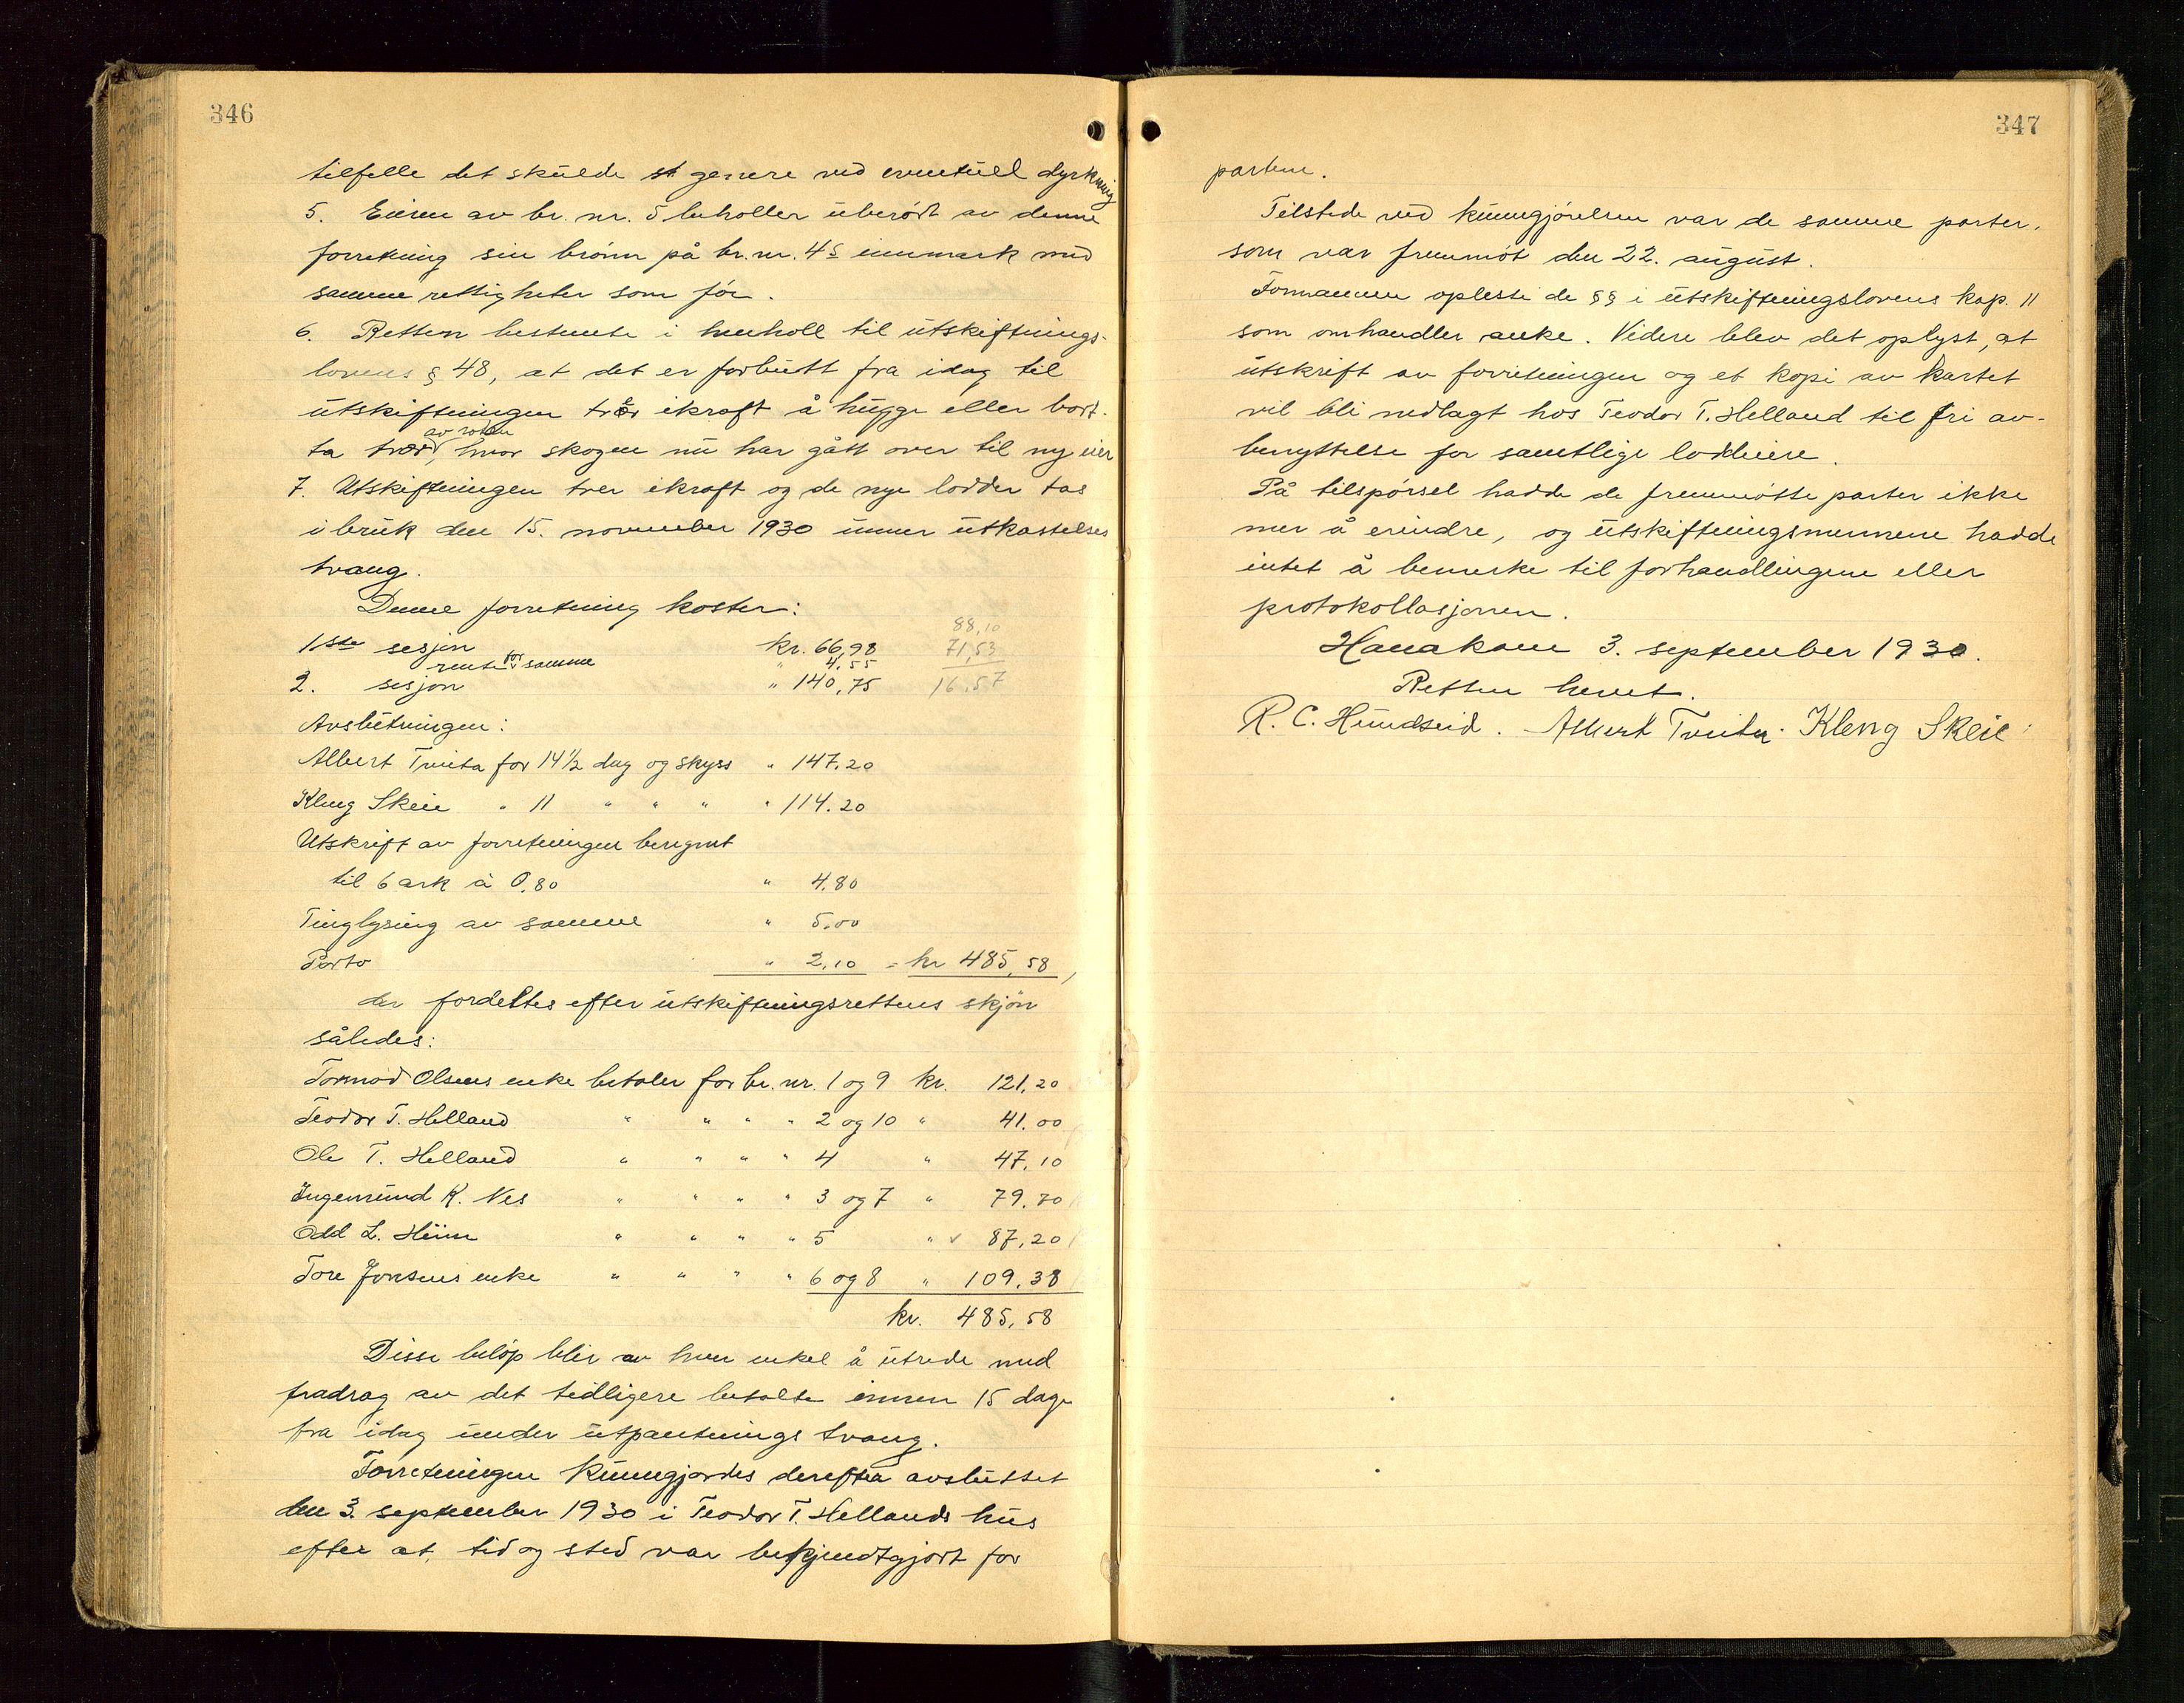 346
tilfelle det skulde st genere ved eventuell dyrkning
5. Eieren av br. nr. 5 beholler uberørt av denne
forretning sin brønn på br. nr. 4s innmark med
samme rettigheter som før.
6. Retten bestemte i henholl til utskiftnings-
lovens § 48, at det er forbutt fra idag til
utskiftningen trer ikraft å hugge eller bort-
av roten
ta trær, hvor skogen nu har gått over til ny eier
7. Utskiftningen trer ikraft og de nye lodder tas
i bruk den 15. november 1930 unner utkastelses
tvang.
Denne forretning koster:
88,10
1ste sesjon kr. 66,98 71,53
rente for samme " 4.55
2. sesjon " 140,75 16.57
Avslutningen:
Albert Tveita for 14½ dag og skyss " 147.20
Kleng Skeie " 11 " " " " 114.20
Utskrift av forretningen beregnet
til 6 ark à 0.80 " 4.80
Tinglysing av samme " 5.00
Porto " 2,10 = kr 485,58,
der fordeltes efter utskiftningsrettens skjøn
således:
Tormod Olsens enke betaler for br. nr. 1 og 9 kr. 121,20
Teodor T. Helland " " " " 2 og 10 " 41.00
Ole T. Helland " " " " 4 " 47,10
Ingemund K. Nes " " " " 3 og 7 " 79.70
Odd L. Heim " " " " 5 " 87,20
Tore Jonsens enke " " " " 6 og 8 " 109.38
kr. 485,58
Disse beløp blir av hver enkel å utrede med
fradrag av det tidligere betalte innen 15 dage
fra idag under utpantnings tvang.
Forretningen kunngjordes derefter avsluttet
den 3. september 1930 i Teodor T. Hellands hus
efter at tid og sted var bekjendtgjort for
347
partene.
Tilstede ved kunngjørelsen var de samme parter,
som var fremmøt den 22. august.
Formannen opleste de §§ i utskiftningslovens kap. 11
som omhandler anke. Videre blev det oplyst, at
utskrift av forretningen og et kopi av kartet
vil bli nedlagt hos Teodor T. Helland til fri av-
benyttelse for samtlige loddeiere.
På tilspørsel hadde de fremmøtte parter ikke
mer å erindre, og utskiftningsmennene hadde
intet å bemerke til forhandlingene eller
protokollasjonen.
Hanakam 3. september 1930.
Retten hevet.
R. C. Hundseid. Albert Tveita. Kleng Skeie